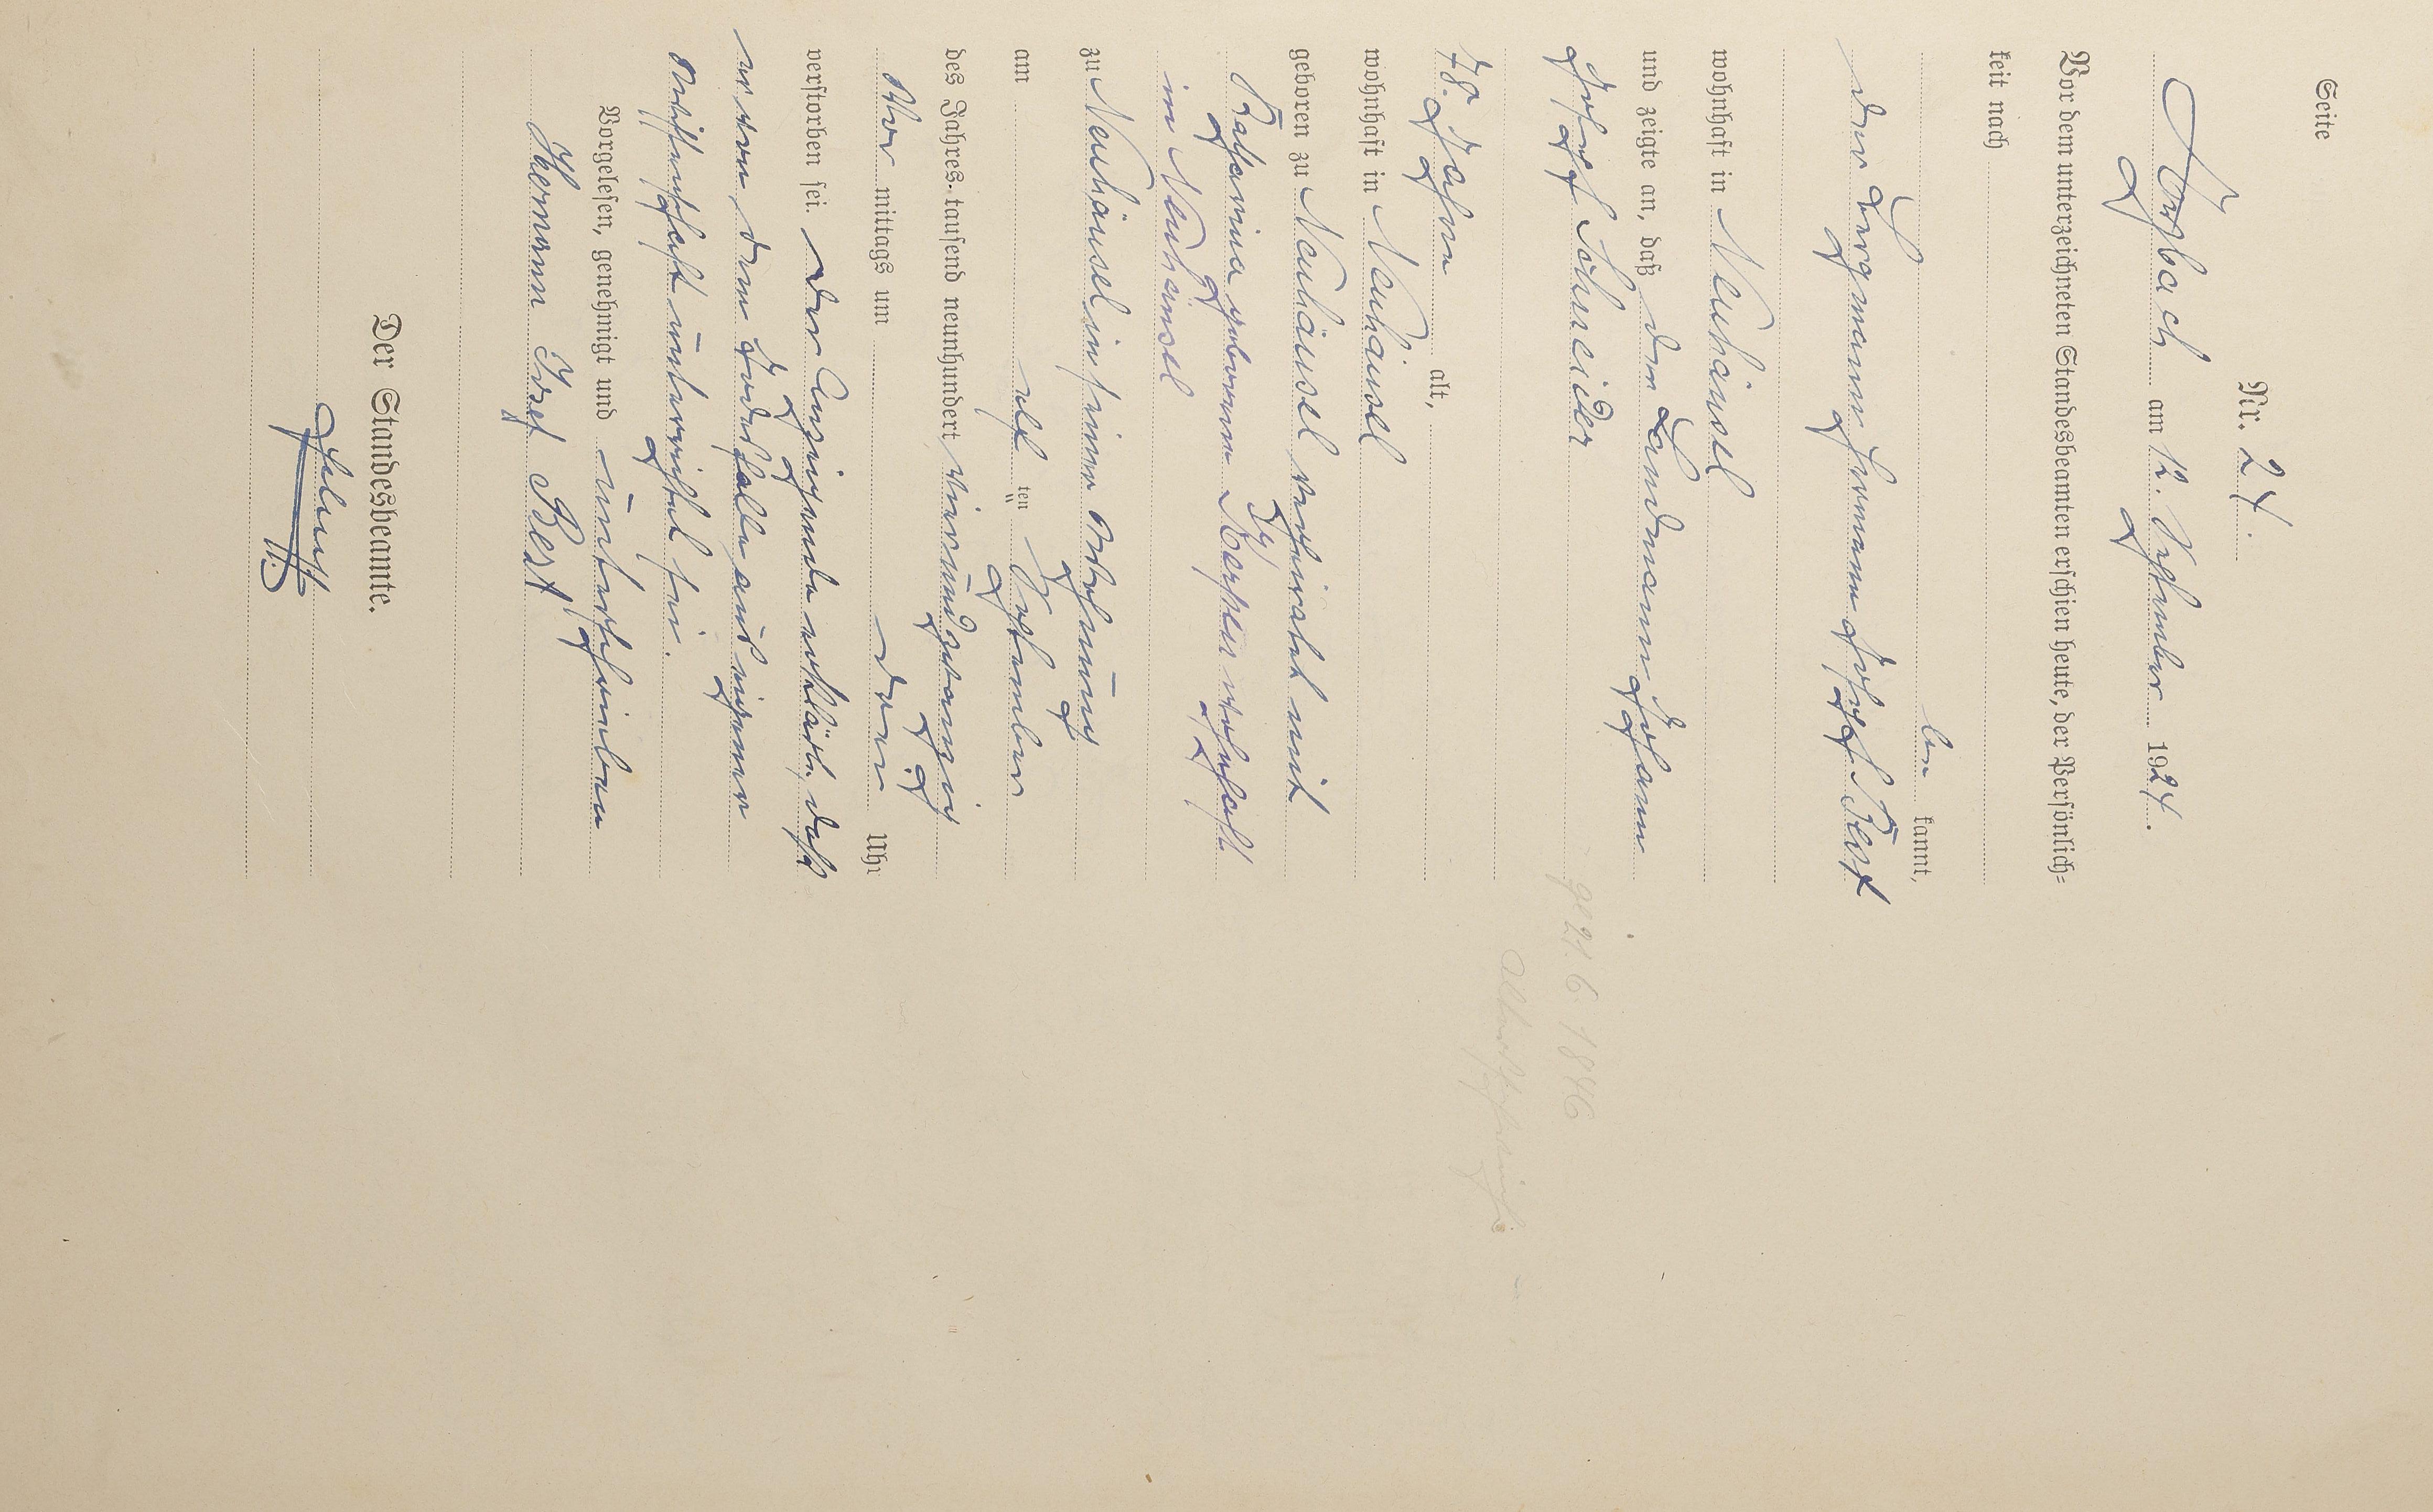 Seite
Nr. 24.
Arzbach am 12. September 1924.
Vor dem unterzeichneten Standesbeamten erschien heute, der Persönlich=
keit nach
be kannt,
der Bergmann Hermann Josef Best
wohnhaft in Neuhäusel
und zeigte an, daß der Landmann Johann
Josef Schneider
ge 21. 6 1846
78. Jahre alt,
wohnhaft in Neuhäusel
geboren zu Neuhäusel verheiratet mit
Katharina geborene Kerpen wohnhaft
in Neuhäusel
zu Neuhäusel in seiner Wohnung
am elf ten September
des Jahres tausend neunhundert vierundzwanzig
Vor mittags um drei Uhr
verstorben sei. Der Anzeigende erklärte, daß
er von dem Todesfalle aus eigener
Wissenschaft unterrichtet sei.
Vorgelesen, genehmigt und unterschrieben
Hermann Josef Best
Der Standesbeamte.